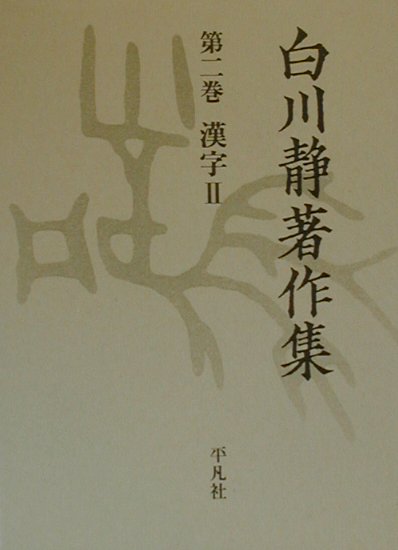 白川静著作集
第二巻 漢字Ⅱ
平凡社